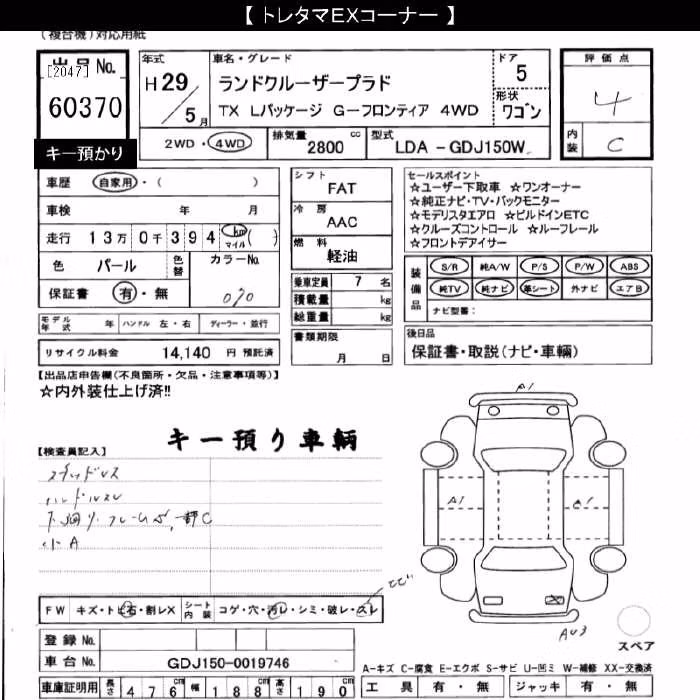 【 トレタマEXコーナー 】
(複合機)対応用紙
出品 No.
[2047]
60370
キー預かり
年式
H 29 / 5 月
車名・グレード
ランドクルーザープラド
TX Lパッケージ G-フロンティア 4WD
ドア
5
形状
ワゴン
評価点
4
内装
C
2WD・4WD
排気量
2800 cc
型式
LDA - GDJ150W
車歴 自家用・( )
車検 年 月
走行 13万 0千 394 km マイル ( )
色 パール 色替
カラーNo.
070
保証書 有・無
シフト FAT
冷房 AAC
燃料 軽油
乗車定員 7 名
積載量 kg
総重量 kg
書類期限
月 日
セールスポイント
☆ユーザー下取車 ☆ワンオーナー
☆純正ナビ・TV・バックモニター
☆モデリスタエアロ ☆ビルドインETC
☆クルーズコントロール ☆ルーフレール
☆フロントデアイサー
装備品
S/R 純A/W P/S P/W ABS
純TV 純ナビ 革シート 外ナビ エアB
ナビ型番:
モデル年式 年 ハンドル 左・右 ディーラー・並行
リサイクル料金 14,140 円 預託済
後日品
保証書・取説(ナビ・車輌)
【出品店申告欄(不良箇所・欠品・注意事項等)】
☆内外装仕上げ済!!
キー預り車輌
【検査員記入】
ハンドルスレ
小A
A1
A1
A1
AU3
FW キズ・トビ石・割レX シート内装 コゲ・穴・汚レ・シミ・破レ・スレ
登録 No.
車台 No. GDJ150-0019746
車庫証明用 長さ 476 cm 幅 188 cm 高さ 190 cm
スペア
A-キズ C-腐食 E-エクボ S-サビ U-凹ミ W-補修 XX-交換済
工具 有・無 ジャッキ 有・無